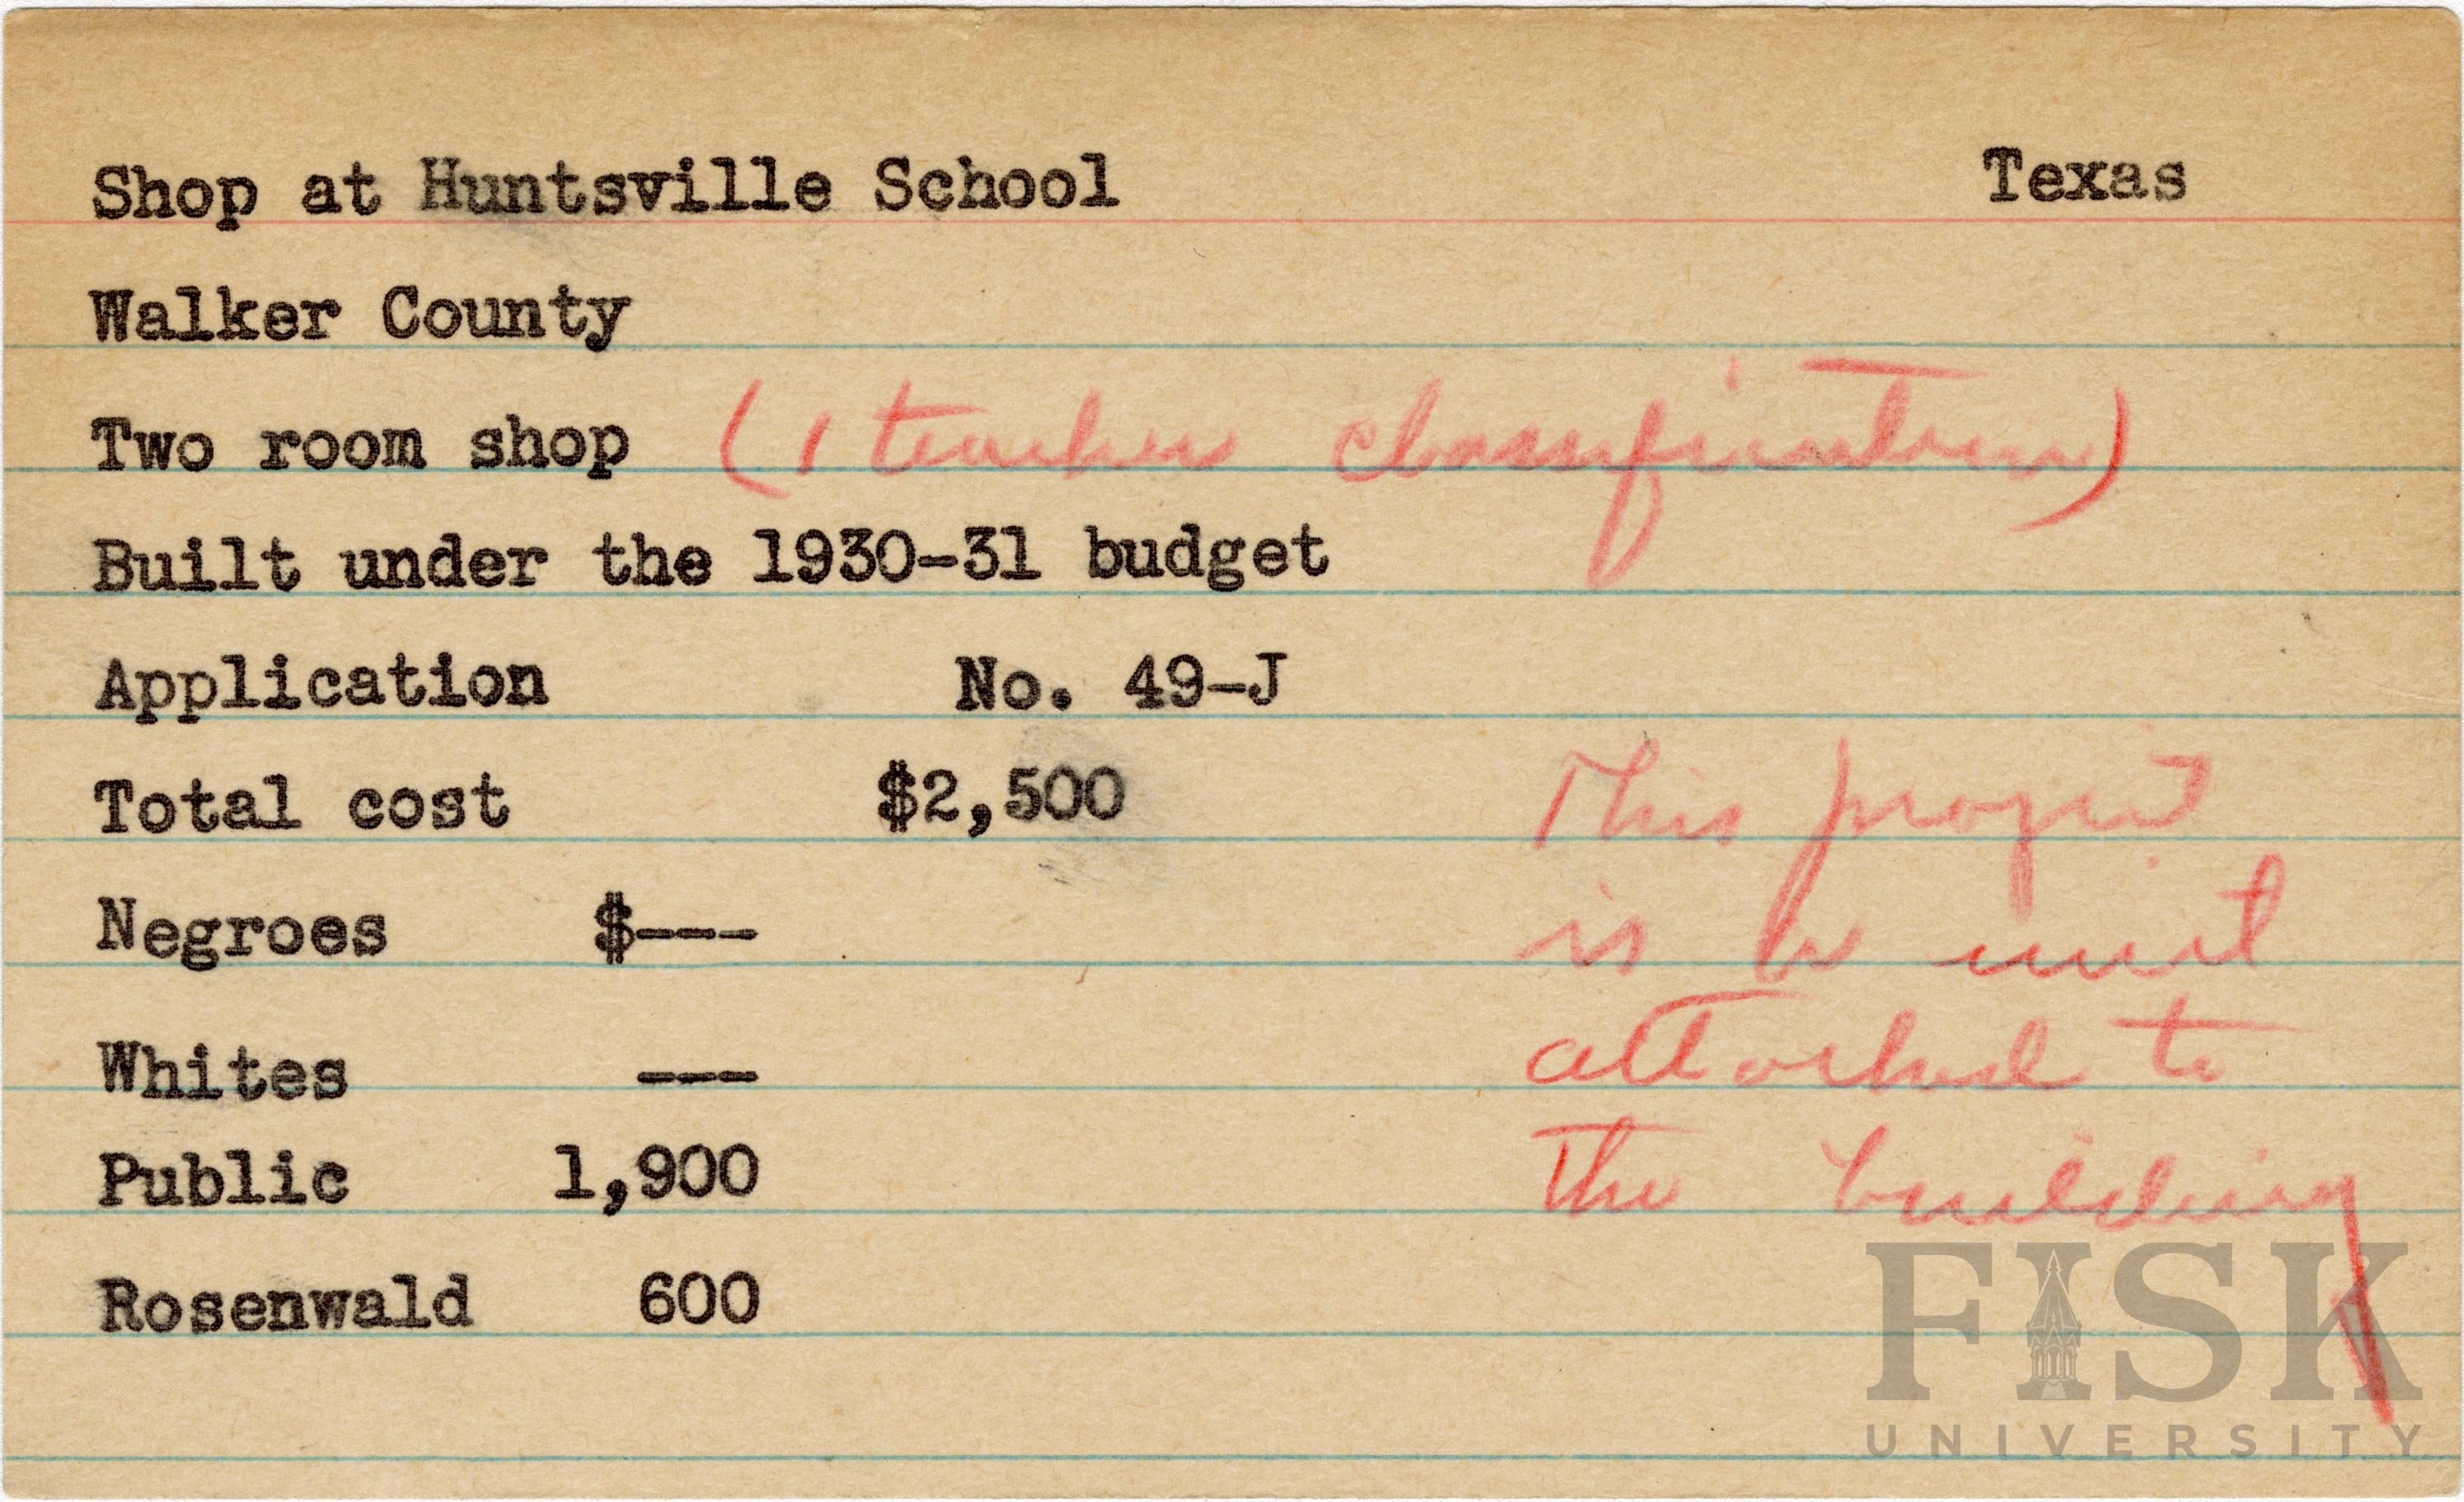 Shop at Huntsville School Texas
Walker County
Two room shop (1 teacher classification)
Built under the 1930-31 budget
Application No. 49-J
Total cost $2,500
This project
Negroes $---
is unit
Whites ---
attached to
Public 1,900
the building
Rosenwald 600
FISK
UNIVERSITY